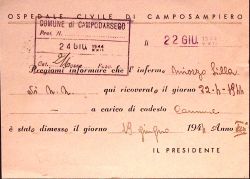 OSPEDALE CIVILE DI CAMPOSAMPIERO
COMUNE di CAMPODARSEGO
Prot. N.
24 GIU. 1944
li 22 GIU. 1944
Cat. Classe Fasc.
Pregiomi informare che l'infermo
di N. N. qui ricoverato il giorno 22-4-1944
a carico di codesto Comune
è stato dimesso il giorno 19 giugno 1944 Anno
IL PRESIDENTE